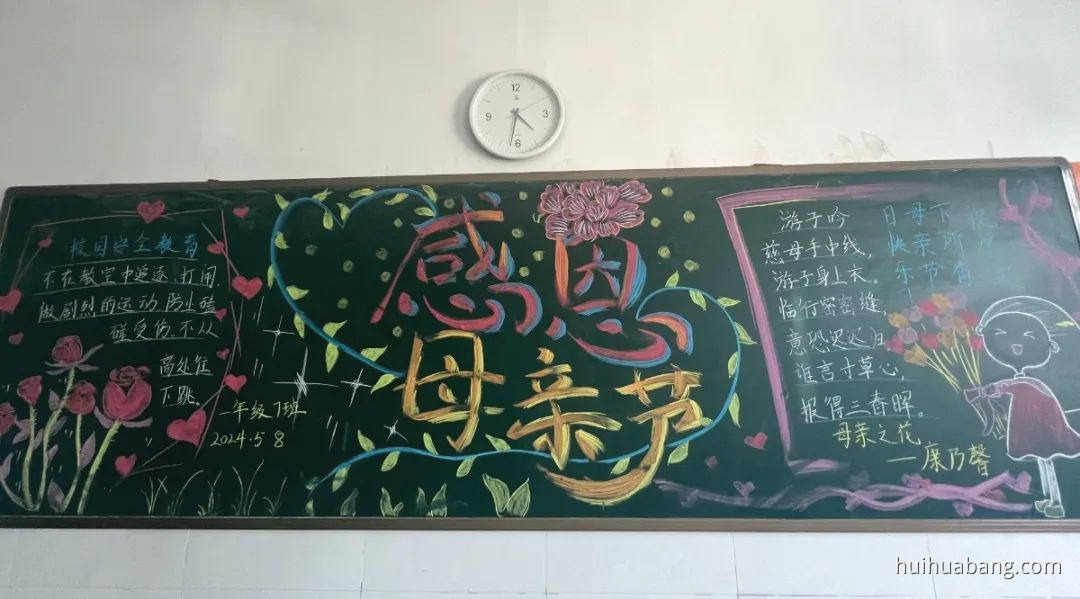 12
9 3
6
校园安全教育
不在教室中追逐打闹
做剧烈的运动 防止磕
碰受伤,不从
高处往
下跳。
一年级7班
2024.5 8
感恩
母亲节
游子吟
慈母手中线,
游子身上衣。
临行密密缝,
意恐迟迟归
谁言寸草心,
报得三春晖。
母亲之花
—康乃馨
下所有
母亲节
日快乐
huihuabang.com